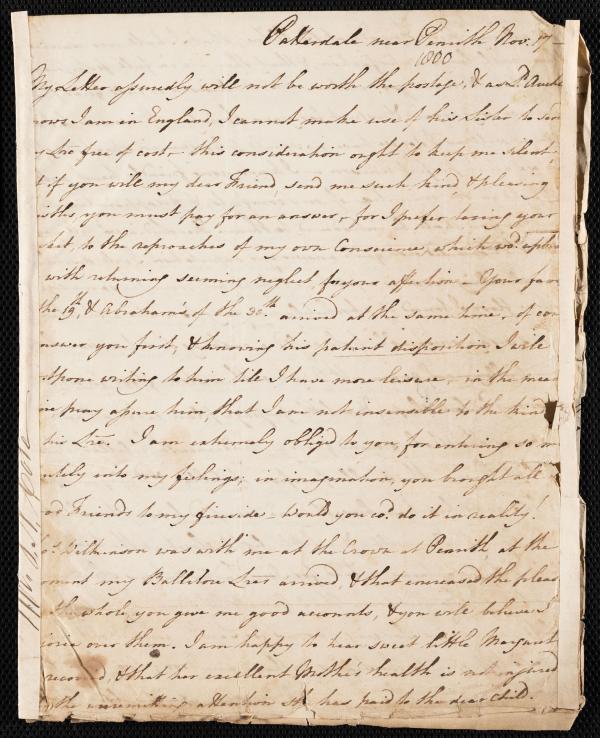 Patterdale near Penrith Nov. 17
1800
My Letter assuredly will not be worth the postage, & as Ld.
nows I am in England, I cannot make use of his Sister to
Lre free of cost - this consideration ought to keep me silent,
t if you will my dear Friend, send me such kind, & pleasing
you must pay for an answer, for I prefer taxing your
to the reproaches of my own Conscience, which wod.
with returning seeming neglect, for your affection - Your fav
the 19th, & Abraham's of the 30th arrived at the same time - of cou
nswer you first, & knowing his patient disposition, I will
stpone writing to him till I have more leisure - in the mea
me pray assure him, that I am not insensible to the kind
his Lre. I am extremely oblig'd to you, for entering so m
utely into my feelings; in imagination, you brought all
Friends to my fireside - Would you cod. do it in reality!
Wilkinson was with me at the Crown at Penrith at the
oment my Ballitore Lres arrived, & that increased the pleas
the whole, you give me good accounts, & you will believe I
over them. I am happy to hear sweet little Margaret
recovered, & that her excellent Mother's health is not injured
the unremitting attention she has paid to the dear child.